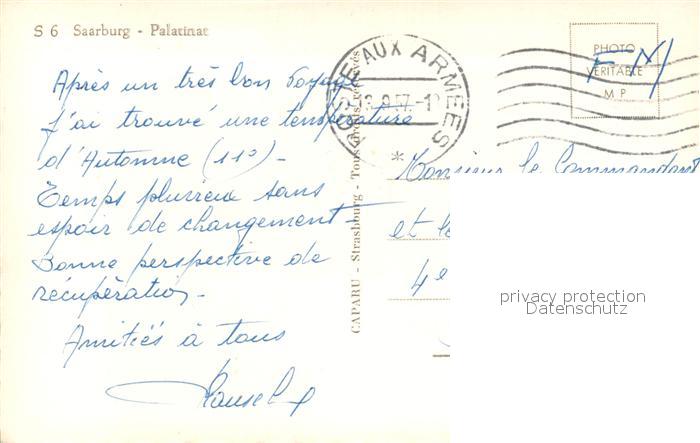 S 6 Saarburg - Palatinat
Après un très bon Voyage
j'ai trouvé une température
d'Automne (11°) -
Temps pluvieux sans
espoir de changement -
Bonne perspective de
récupération -
Amitiés à tous
POSTE AUX ARMEES
CAPARU - Strasbourg - Tous droits réservés
PHOTO
VERITABLE
M P
F M
* Monsieur le Commandant
et
4e
privacy protection
Datenschutz